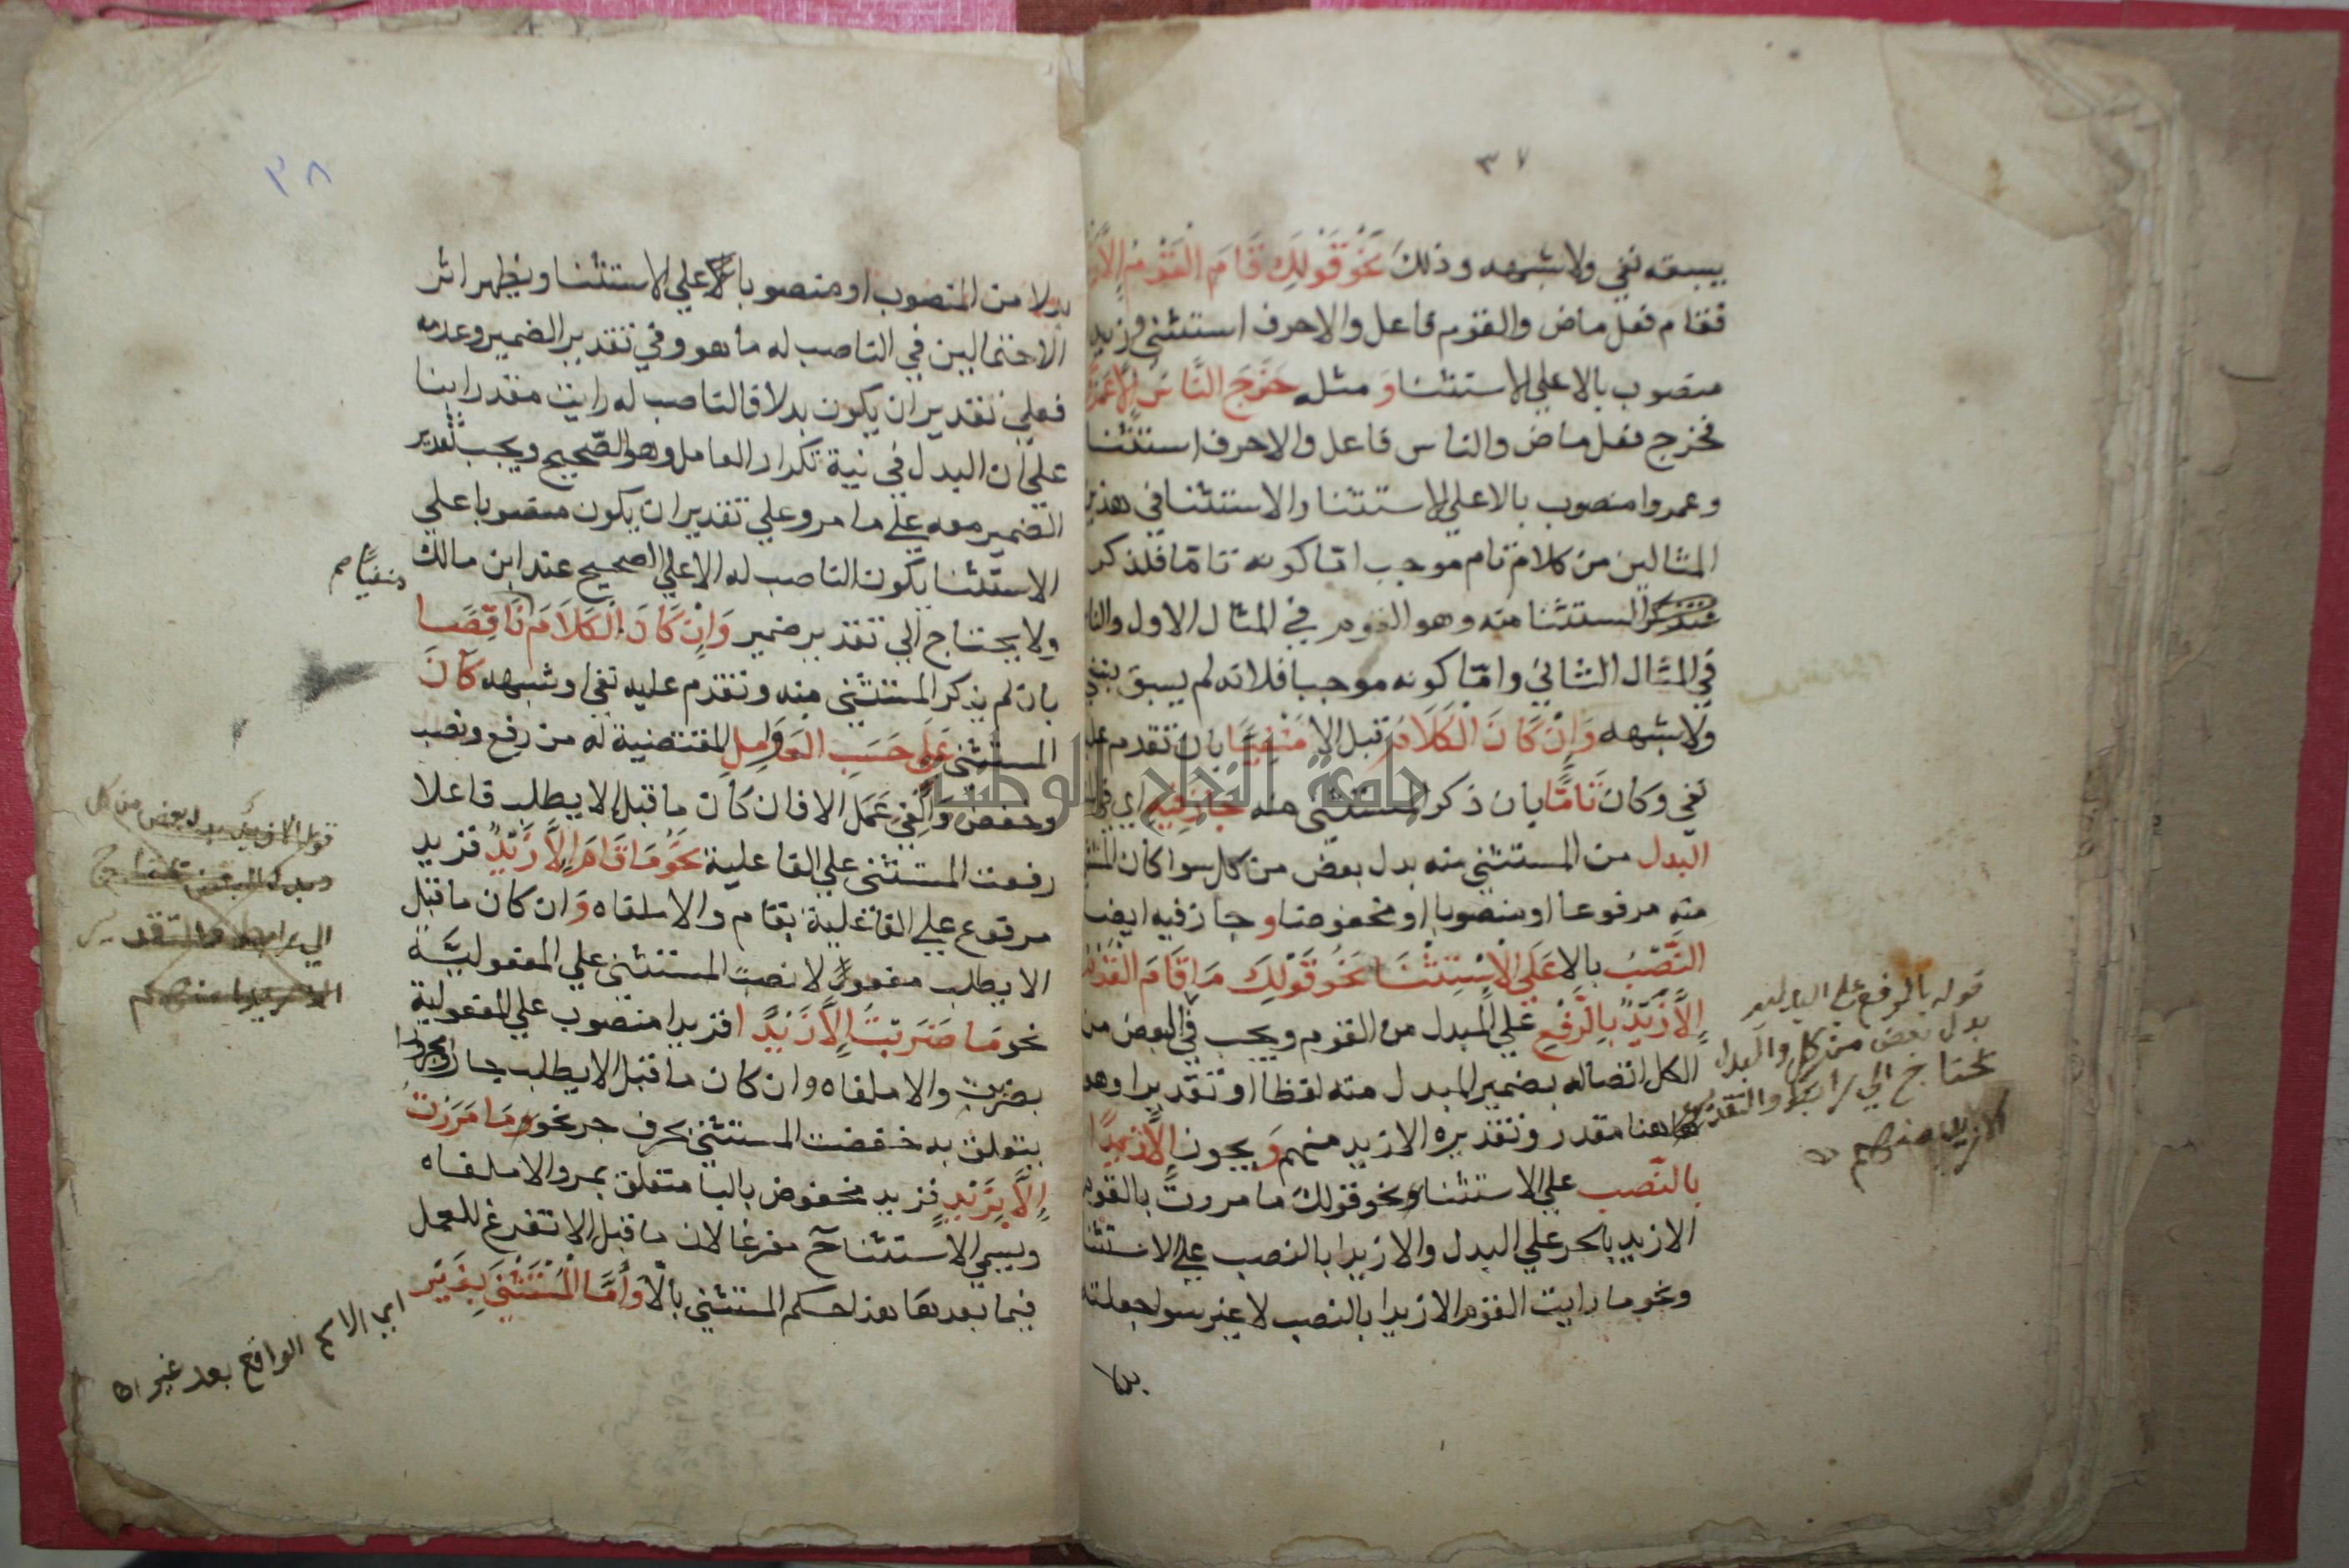 ٣٧
يسبقه نفي ولا شبهه وذلك نَحْوُ قَوْلِكَ قَامَ الْقَوْمُ إِلَّا
فقام فعل ماض والقوم فاعل والا حرف استثنى وزيد
منصوب بالا علي الاستثنا وَمثله خَرَجَ النَّاسُ إِلَّا عَمْرًا
فخرج فعل ماض والناس فاعل والا حرف استثنا
وعمروا منصوب بالا علي الاستثنا والاستثنا في هذين
المثالين من كلام تام موجب امّا كونه تامّا فلذكر
المستثنا منه وهو القوم في المثال الاول والنا
في المثال الثاني وامّا كونه موجبا فلانه لم يسبق بنفي
ولا شبهه وَإِنْ كَانَ الْكَلَامُ قبل الا مَنْفِيًّا بان تقدم عليه
نفي وكان تَامًّا بان ذكر المستثنى منه جَازَ فِيهِ اي في
البدل من المستثنى منه بدل بعض من كل سوا كان المستثنى
منه مرفوعا او منصوبا او مخفوضا و جاز فيه ايضا
النَّصْبُ بالا عَلَى الْاِسْتِثْنَا نَحْوُ قَوْلِكَ مَا قَامَ الْقَوْمُ
إِلَّا زَيْدٌ بِالرَّفْعِ علي البدل من القوم ويجب في البعض من
الكل اتصاله بضمير المبدل منه لفظا او تقديرا وهو
هنا مقدر وتقديره الا زيد منهم وَ يجوز إِلَّا زَيْدًا
بالنّصب علي الاستثنا ونحو قولك ما مررت بالقوم
الا زيد بالجر علي البدل والا زيدا بالنصب علي الاستثنا
ونحو ما رايت القوم الا زيدا بالنصب لا غير سوا جعلته
بدلا
قوله بالرفع علي البدليه
بدل بعض من كل والبدل
يحتاج الي رابط والتقدير
الا زيد منهم
٣٨
بدلا من المنصوب او منصوبا بالا علي الاستثنا ويظهر اثر
الاحتمالين في الناصب له ما هو وفي تقدير الضمير وعدمه
فعلي تقدير ان يكون بدلا فالناصب له رايت مقدرا بنا
علي ان البدل في نية تكرار العامل وهو الصّحيح ويجب تقدير
الضمير معه علي ما مر وعلي تقدير ان يكون منصوبا علي
الاستثنا يكون الناصب له الا علي الصحيح عند ابن مالك
ولا يحتاج الي تقدير ضمير وَإِنْ كَانَ الْكَلَامُ نَاقِصًا
منفيًا صح
بان لم يذكر المستثنى منه وتقدم عليه نفي او شبهه كَانَ
المستثنى عَلَى حَسَبِ الْعَوَامِلِ المقتضية له من رفع ونصب
وخفض وَأُلْغِيَ عَمَلُ الا فان كان ما قبل الا يطلب فاعلا
رفعت المستثنى علي الفاعلية نَحْوُ مَا قَامَ إِلَّا زَيْدٌ فزيد
مرفوع علي الفاعلية بقام والا ملغاه وَان كان ما قبل
الا يطلب مفعولا نصبت المستثنى علي المفعوليّة
نحو مَا ضَرَبْتُ إِلَّا زَيْدًا فزيدا منصوب علي المفعولية
بضربت والا ملغاه وان كان ما قبل الا يطلب جارا ومجرورا
يتعلق به خفضت المستثنى بحرف جر نحو مَا مَرَرْتُ
إِلَّا بِزَيْدٍ فزيد مخفوض بالبا متعلق بمر والا ملغاه
ويسمي الاستثنا ح مفرغا لان ما قبل الا تفرغ للعمل
فيما بعدها هذا حكم المستثنى بالّا وَأَمَّا الْمُسْتَثْنَى بِغَيْرِ
اي الاسم الواقع بعد غير اه
قوله الا زيد بدل بعض من كل
وبدل البعض يحتاج
الي رابط والتقدير
الا زيد منهم
جامعة النجاح الوطنية